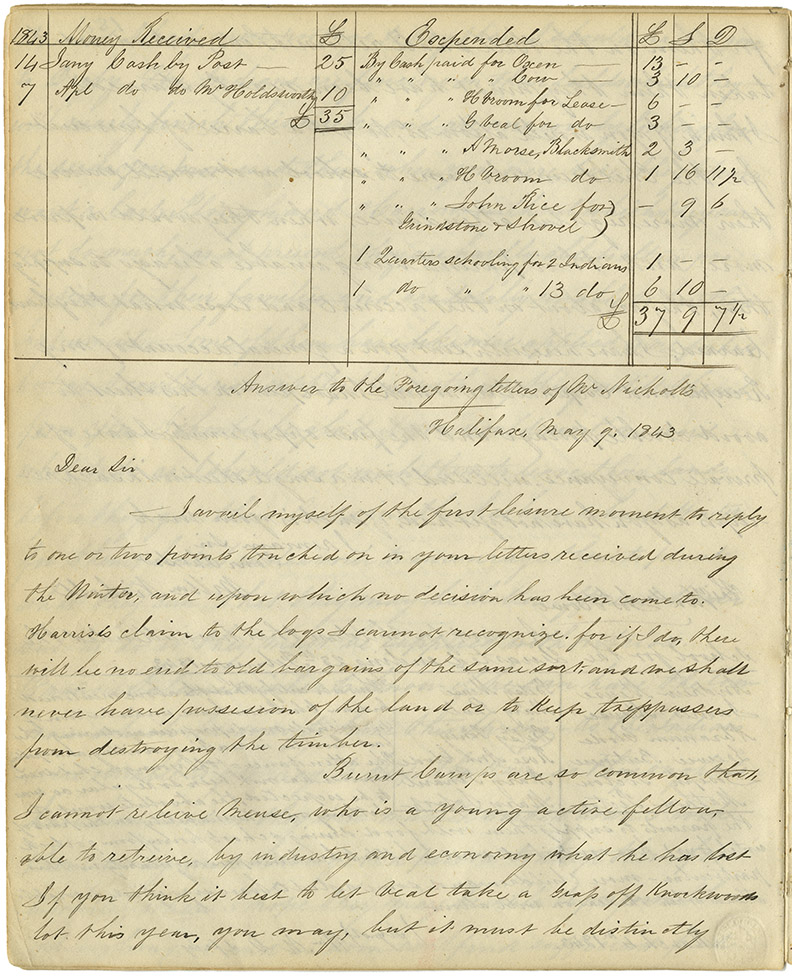 1843 Money Received £ Expended £ S D
14 Jany Cash by Post — 25 By Cash paid for Oxen — 13 – –
7 Apl do do Mr Holdsworth 10 " " " " Cow — 3 10 –
£ 35 " " " H Vroom for Lease — 6 – –
" " " G Veal for do 3 – –
" " " A Morse, Blacksmith 2 3 –
" " " H Vroom do 1 16 11½
" " " John Rice for } – 9 6
Grindstone & Shovel
1 Quarters schooling for 2 Indians 1 – –
1 do " " 13 do 6 10 –
£ 37 9 7½
Answer to the Foregoing letters of Mr Nicholls
Halifax, May 9. 1843
Dear Sir
I avail myself of the first leisure moment to reply
to one or two points touched on in your letters received during
the Winter, and upon which no decision has been come to.
Harris's claim to the logs I cannot recognize. for if I do, there
will be no end to old bargains of the same sort, and we shall
never have possesion of the land or to keep treppassers
from destroying the timber.
Burnt Camps are so common that,
I cannot releive Meuse, who is a young active fellow,
able to retreive, by industry and economy what he has lost
If you think it best to let Veal take a Grap off Knockwoods
lot this year, you may, but it must be distinctly